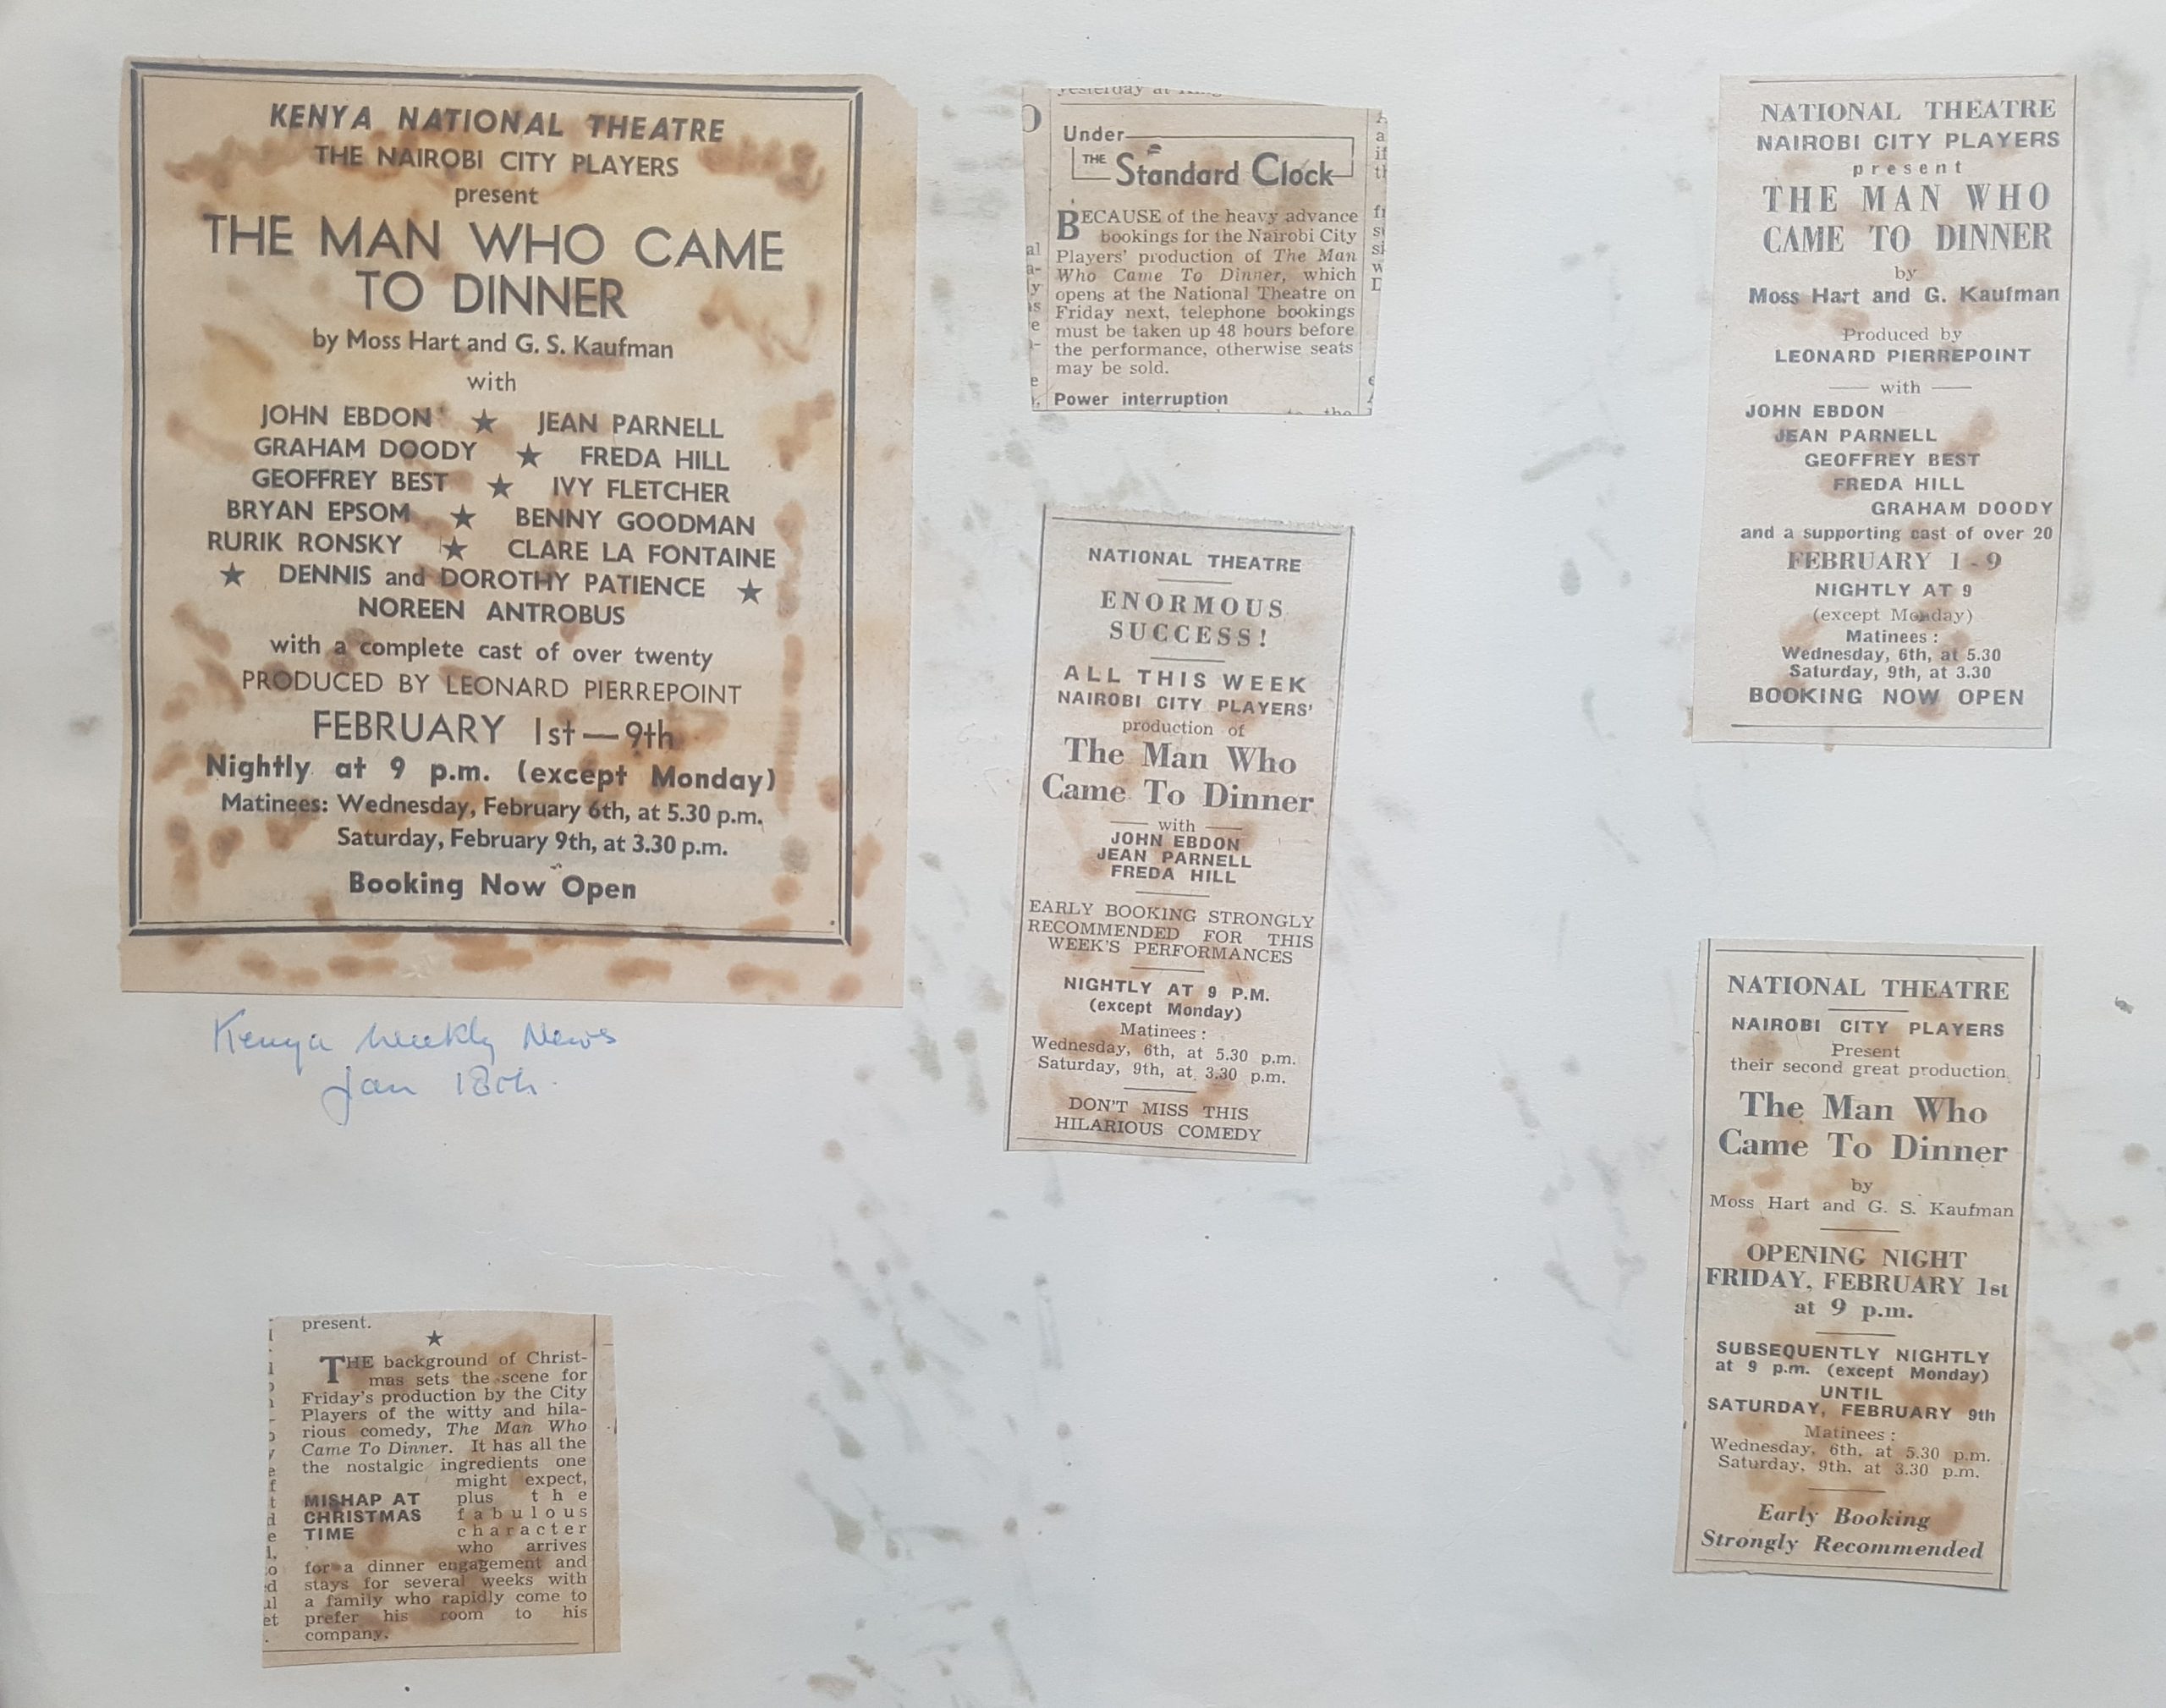 KENYA NATIONAL THEATRE
THE NAIROBI CITY PLAYERS
present
THE MAN WHO CAME
TO DINNER
by Moss Hart and G. S. Kaufman
with
JOHN EBDON ★ JEAN PARNELL
GRAHAM DOODY ★ FREDA HILL
GEOFFREY BEST ★ IVY FLETCHER
BRYAN EPSOM ★ BENNY GOODMAN
RURIK RONSKY ★ CLARE LA FONTAINE
★ DENNIS and DOROTHY PATIENCE ★
NOREEN ANTROBUS
with a complete cast of over twenty
PRODUCED BY LEONARD PIERREPOINT
FEBRUARY 1st—9th
Nightly at 9 p.m. (except Monday)
Matinees: Wednesday, February 6th, at 5.30 p.m.
Saturday, February 9th, at 3.30 p.m.
Booking Now Open
Kenya Weekly News
Jan 18th.
present.
★
THE background of Christ-
mas sets the scene for
Friday's production by the City
Players of the witty and hila-
rious comedy, The Man Who
Came To Dinner. It has all the
the nostalgic ingredients one
might expect,
MISHAP AT plus the
CHRISTMAS fabulous
TIME character
who arrives
for a dinner engagement and
stays for several weeks with
a family who rapidly come to
prefer his room to his
company.
yesterday at
Under
THE Standard Clock
BECAUSE of the heavy advance
bookings for the Nairobi City
Players' production of The Man
Who Came To Dinner, which
opens at the National Theatre on
Friday next, telephone bookings
must be taken up 48 hours before
the performance, otherwise seats
may be sold.
Power interruption
to the
NATIONAL THEATRE
ENORMOUS
SUCCESS!
ALL THIS WEEK
NAIROBI CITY PLAYERS'
production of
The Man Who
Came To Dinner
with
JOHN EBDON
JEAN PARNELL
FREDA HILL
EARLY BOOKING STRONGLY
RECOMMENDED FOR THIS
WEEK'S PERFORMANCES
NIGHTLY AT 9 P.M.
(except Monday)
Matinees :
Wednesday, 6th, at 5.30 p.m.
Saturday, 9th, at 3.30 p.m.
DON'T MISS THIS
HILARIOUS COMEDY
NATIONAL THEATRE
NAIROBI CITY PLAYERS
present
THE MAN WHO
CAME TO DINNER
by
Moss Hart and G. Kaufman
Produced by
LEONARD PIERREPOINT
with
JOHN EBDON
JEAN PARNELL
GEOFFREY BEST
FREDA HILL
GRAHAM DOODY
and a supporting cast of over 20
FEBRUARY 1 - 9
NIGHTLY AT 9
(except Monday)
Matinees :
Wednesday, 6th, at 5.30
Saturday, 9th, at 3.30
BOOKING NOW OPEN
NATIONAL THEATRE
NAIROBI CITY PLAYERS
Present
their second great production
The Man Who
Came To Dinner
by
Moss Hart and G. S. Kaufman
OPENING NIGHT
FRIDAY, FEBRUARY 1st
at 9 p.m.
SUBSEQUENTLY NIGHTLY
at 9 p.m. (except Monday)
UNTIL
SATURDAY, FEBRUARY 9th
Matinees :
Wednesday, 6th, at 5.30 p.m.
Saturday, 9th, at 3.30 p.m.
Early Booking
Strongly Recommended